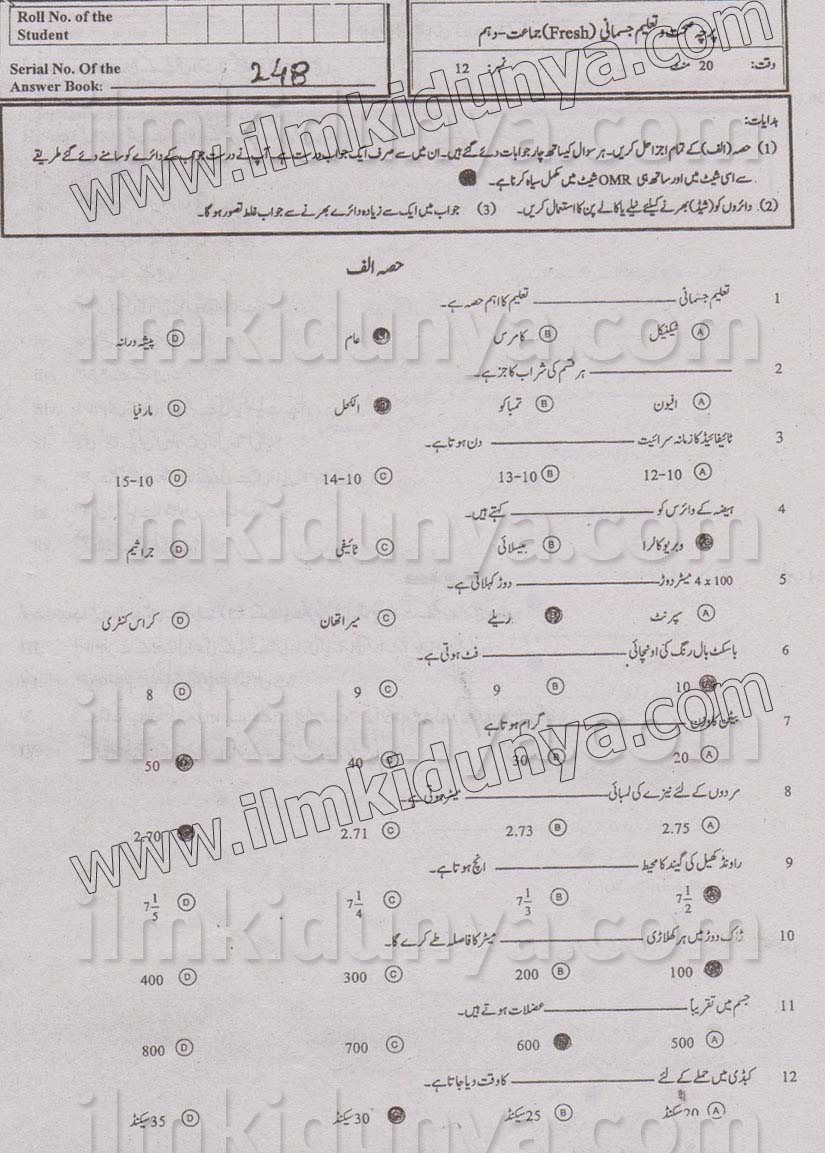 Roll No. of the
Student
Serial No. Of the
Answer Book:
248
پرچہ صحت و تعلیم جسمانی (Fresh) جماعت-دہم
وقت: 20 منٹ نمبر: 12
ہدایات:
(1) حصہ (الف) کے تمام اجزا حل کریں۔ ہر سوال کیساتھ چار جوابات دئے گئے ہیں۔ ان میں سے صرف ایک جواب درست ہے۔ آپ نے درست جواب کے دائرے کو سامنے دئے گئے طریقے
سے اسی شیٹ میں اور ساتھ ہی OMR شیٹ میں مکمل سیاہ کرنا ہے۔
(2) دائروں کو (شیڈ) بھرنے کیلئے نیلے یا کالے پن کا استعمال کریں۔ (3) جواب میں ایک سے زیادہ دائرے بھرنے سے جواب غلط تصور ہوگا۔
حصہ الف
1 تعلیم جسمانی ________ تعلیم کا اہم حصہ ہے۔
A ٹیکنیکل B کامرس عام D پیشہ ورانہ
2 ________ ہر قسم کی شراب کا جز ہے۔
A افیون B تمباکو الکحل D مارفیا
3 ٹائیفائیڈ کا زمانہ سرائیت ________ دن ہوتا ہے۔
A 12-10 B 13-10 C 14-10 D 15-10
4 ہیضہ کے وائرس کو ________ کہتے ہیں۔
وبریو کالرا B بیسلائی C ٹائیفی D جراثیم
5 4 x 100 میٹر دوڑ ________ دوڑ کہلاتی ہے۔
A سپرنٹ ریلے C میراتھان D کراس کنٹری
6 باسکٹ بال رنگ کی اونچائی ________ فٹ ہوتی ہے۔
10 B 9 C 9 D 8
7 بیٹن کا وزن ________ گرام ہوتا ہے
A 20 B 30 C 40 50
8 مردوں کے لئے نیزے کی لمبائی ________ میٹر ہوتی ہے۔
A 2.75 B 2.73 C 2.71 2.70
9 راونڈ کھیل کی گیند کا محیط ________ انچ ہوتا ہے۔
7 1/2 B 7 1/3 C 7 1/4 D 7 1/5
10 ڈاک دوڑ میں ہر کھلاڑی ________ میٹر کا فاصلہ طے کرے گا۔
100 B 200 C 300 D 400
11 جسم میں تقریباً ________ عضلات ہوتے ہیں۔
A 500 600 C 700 D 800
12 کبڈی میں حملے کے لئے ________ کا وقت دیا جاتا ہے۔
A 20 سیکنڈ B 25 سیکنڈ 30 سیکنڈ D 35 سیکنڈ
www.ilmkidunya.com
ilmkidunya.com
ilmkidunya.com
ilmkidunya.com
ilmkidunya.com
www.ilmkidunya.com
ilmkidunya.com
ilmkidunya.com